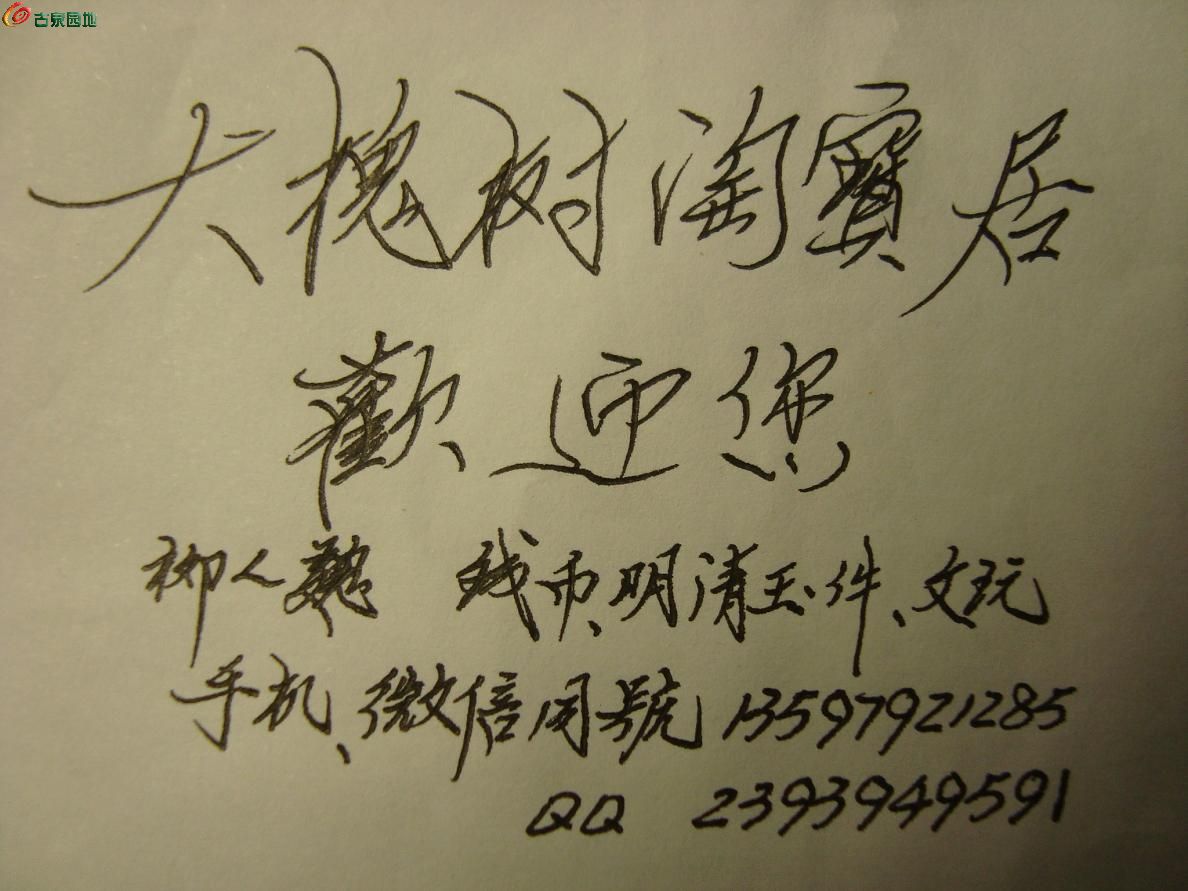 古泉园地
大槐树淘寳居
歡迎您
柳人 钱币、明清玉件、文玩
手机、微信同號 13597921285
QQ 2393949591